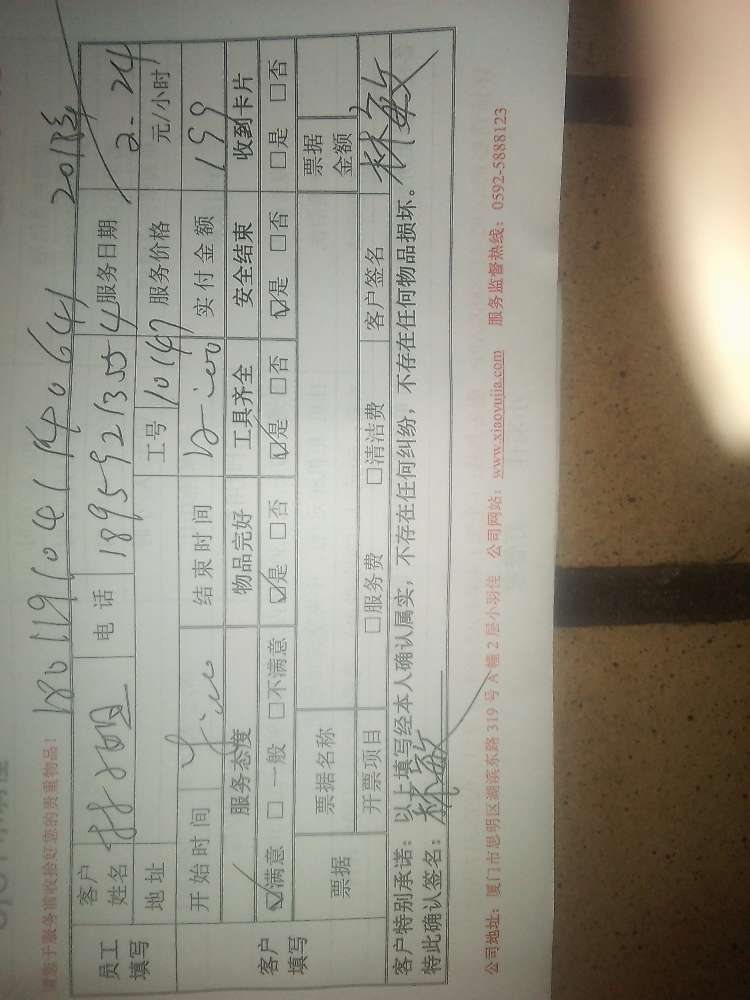 请您于服务前收拾好您的贵重物品!
180119104114064
员工填写 客户姓名 电话 18959213554 服务日期 2-24
地址 工号 10147 服务价格 元/小时
客户填写 开始时间 结束时间 12:00 实付金额 199
服务态度 物品完好 工具齐全 安全结束 收到卡片
☑满意 □一般 □不满意 ☑是 □否 ☑是 □否 ☑是 □否 □是 □否
票据 票据名称 票据金额
开票项目 □服务费 □清洁费 客户签名 林敏
客户特别承诺:以上填写经本人确认属实,不存在任何纠纷,不存在任何物品损坏。
特此确认签名:林敏
公司地址:厦门市思明区湖滨东路 319 号 A 幢 2 层小羽佳 公司网站:www.xiaoyujia.com 服务监督热线:0592-5888123